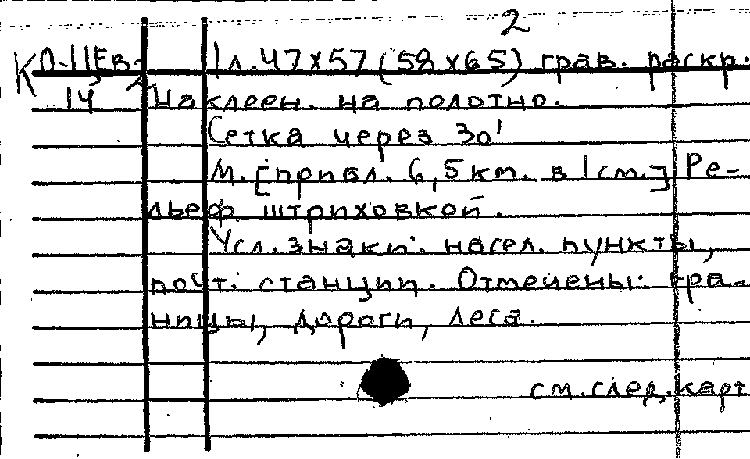 2
К О-11Ев- 1л. 47x57 (52x65) грав. раскр.
14 Наклеен. на полотно.
Сетка через 30'
М. [прибл. 6,5 км. в 1 см.] Ре-
льеф штриховкой.
Усл. знаки: насел. пункты,
почт. станции. Отмечены: гра-
ницы, дороги, леса.
см. след. карт